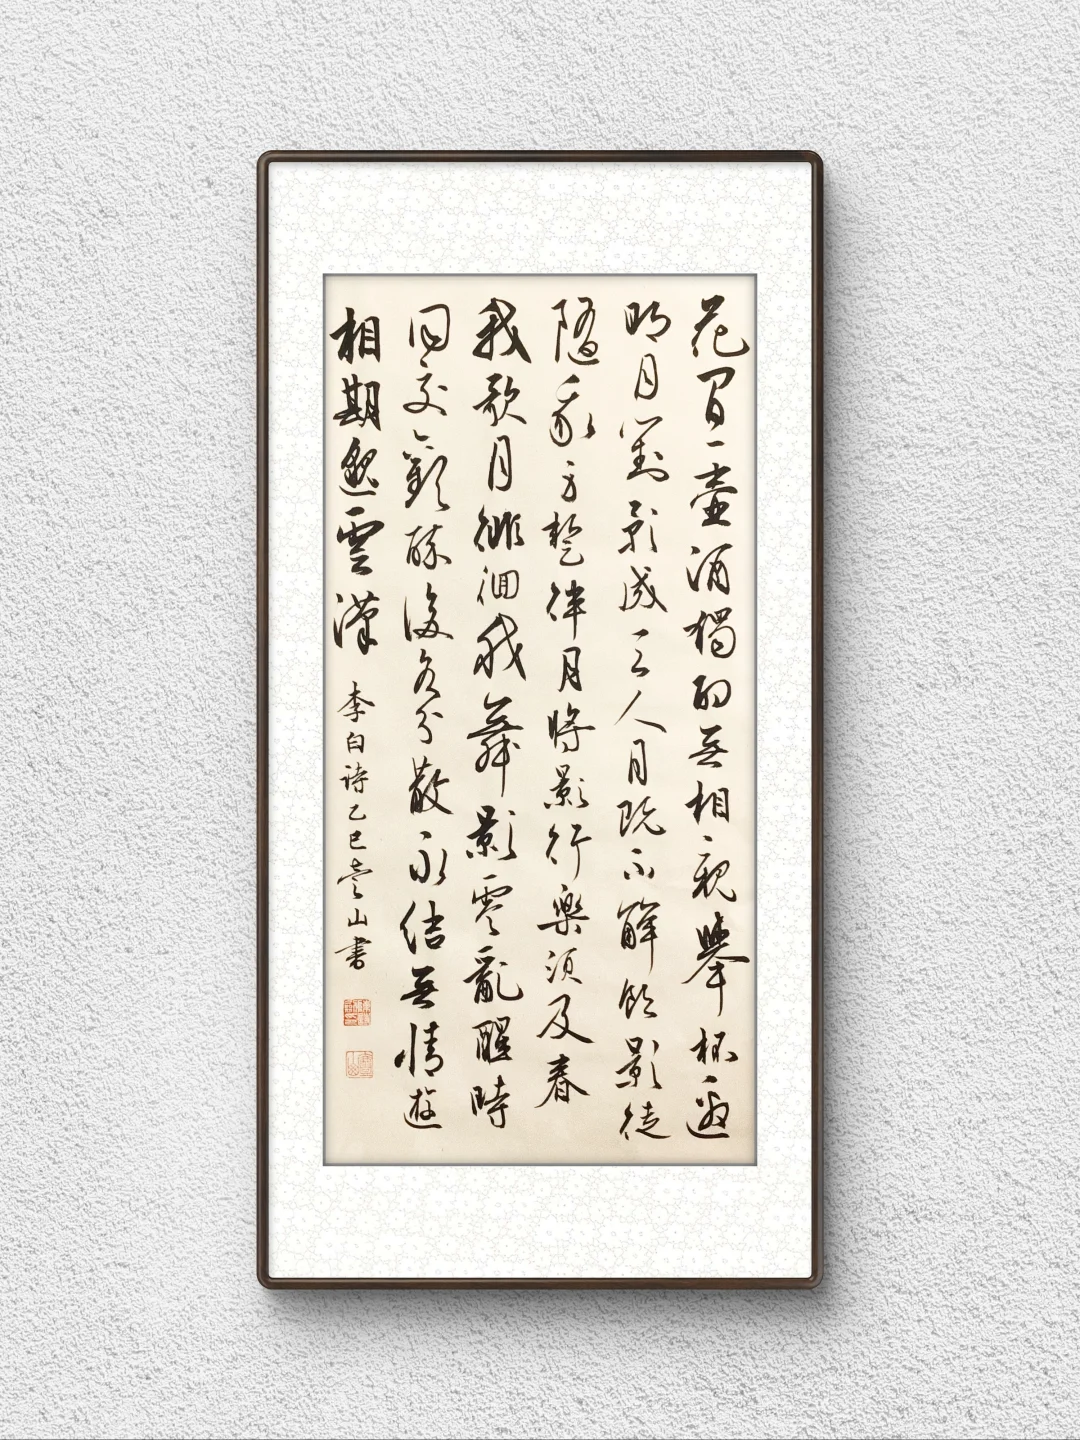 花間一壺酒獨酌無相親舉杯邀
明月對影成三人月既不解飲影徒
隨我身暫伴月將影行樂須及春
我歌月徘徊我舞影零亂醒時
同交歡醉後各分散永結無情遊
相期邈雲漢 李白詩乙巳山書